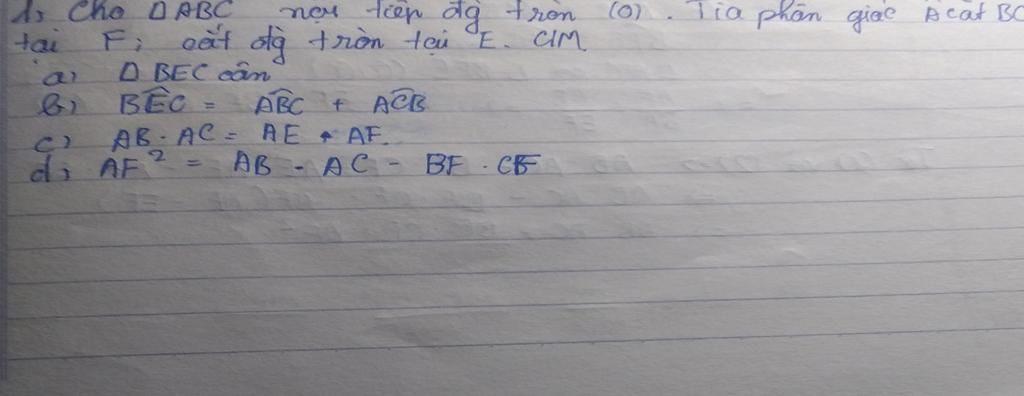 1, Cho ΔABC nội tiếp đg tròn (O). Tia phân giác A cắt BC
tại F; cắt đg tròn tại E. CIM
a, Δ BEC cân
b, BÊC = ABC + ACB
c, AB . AC = AE . AF.
d, AF² = AB - AC - BF . CF